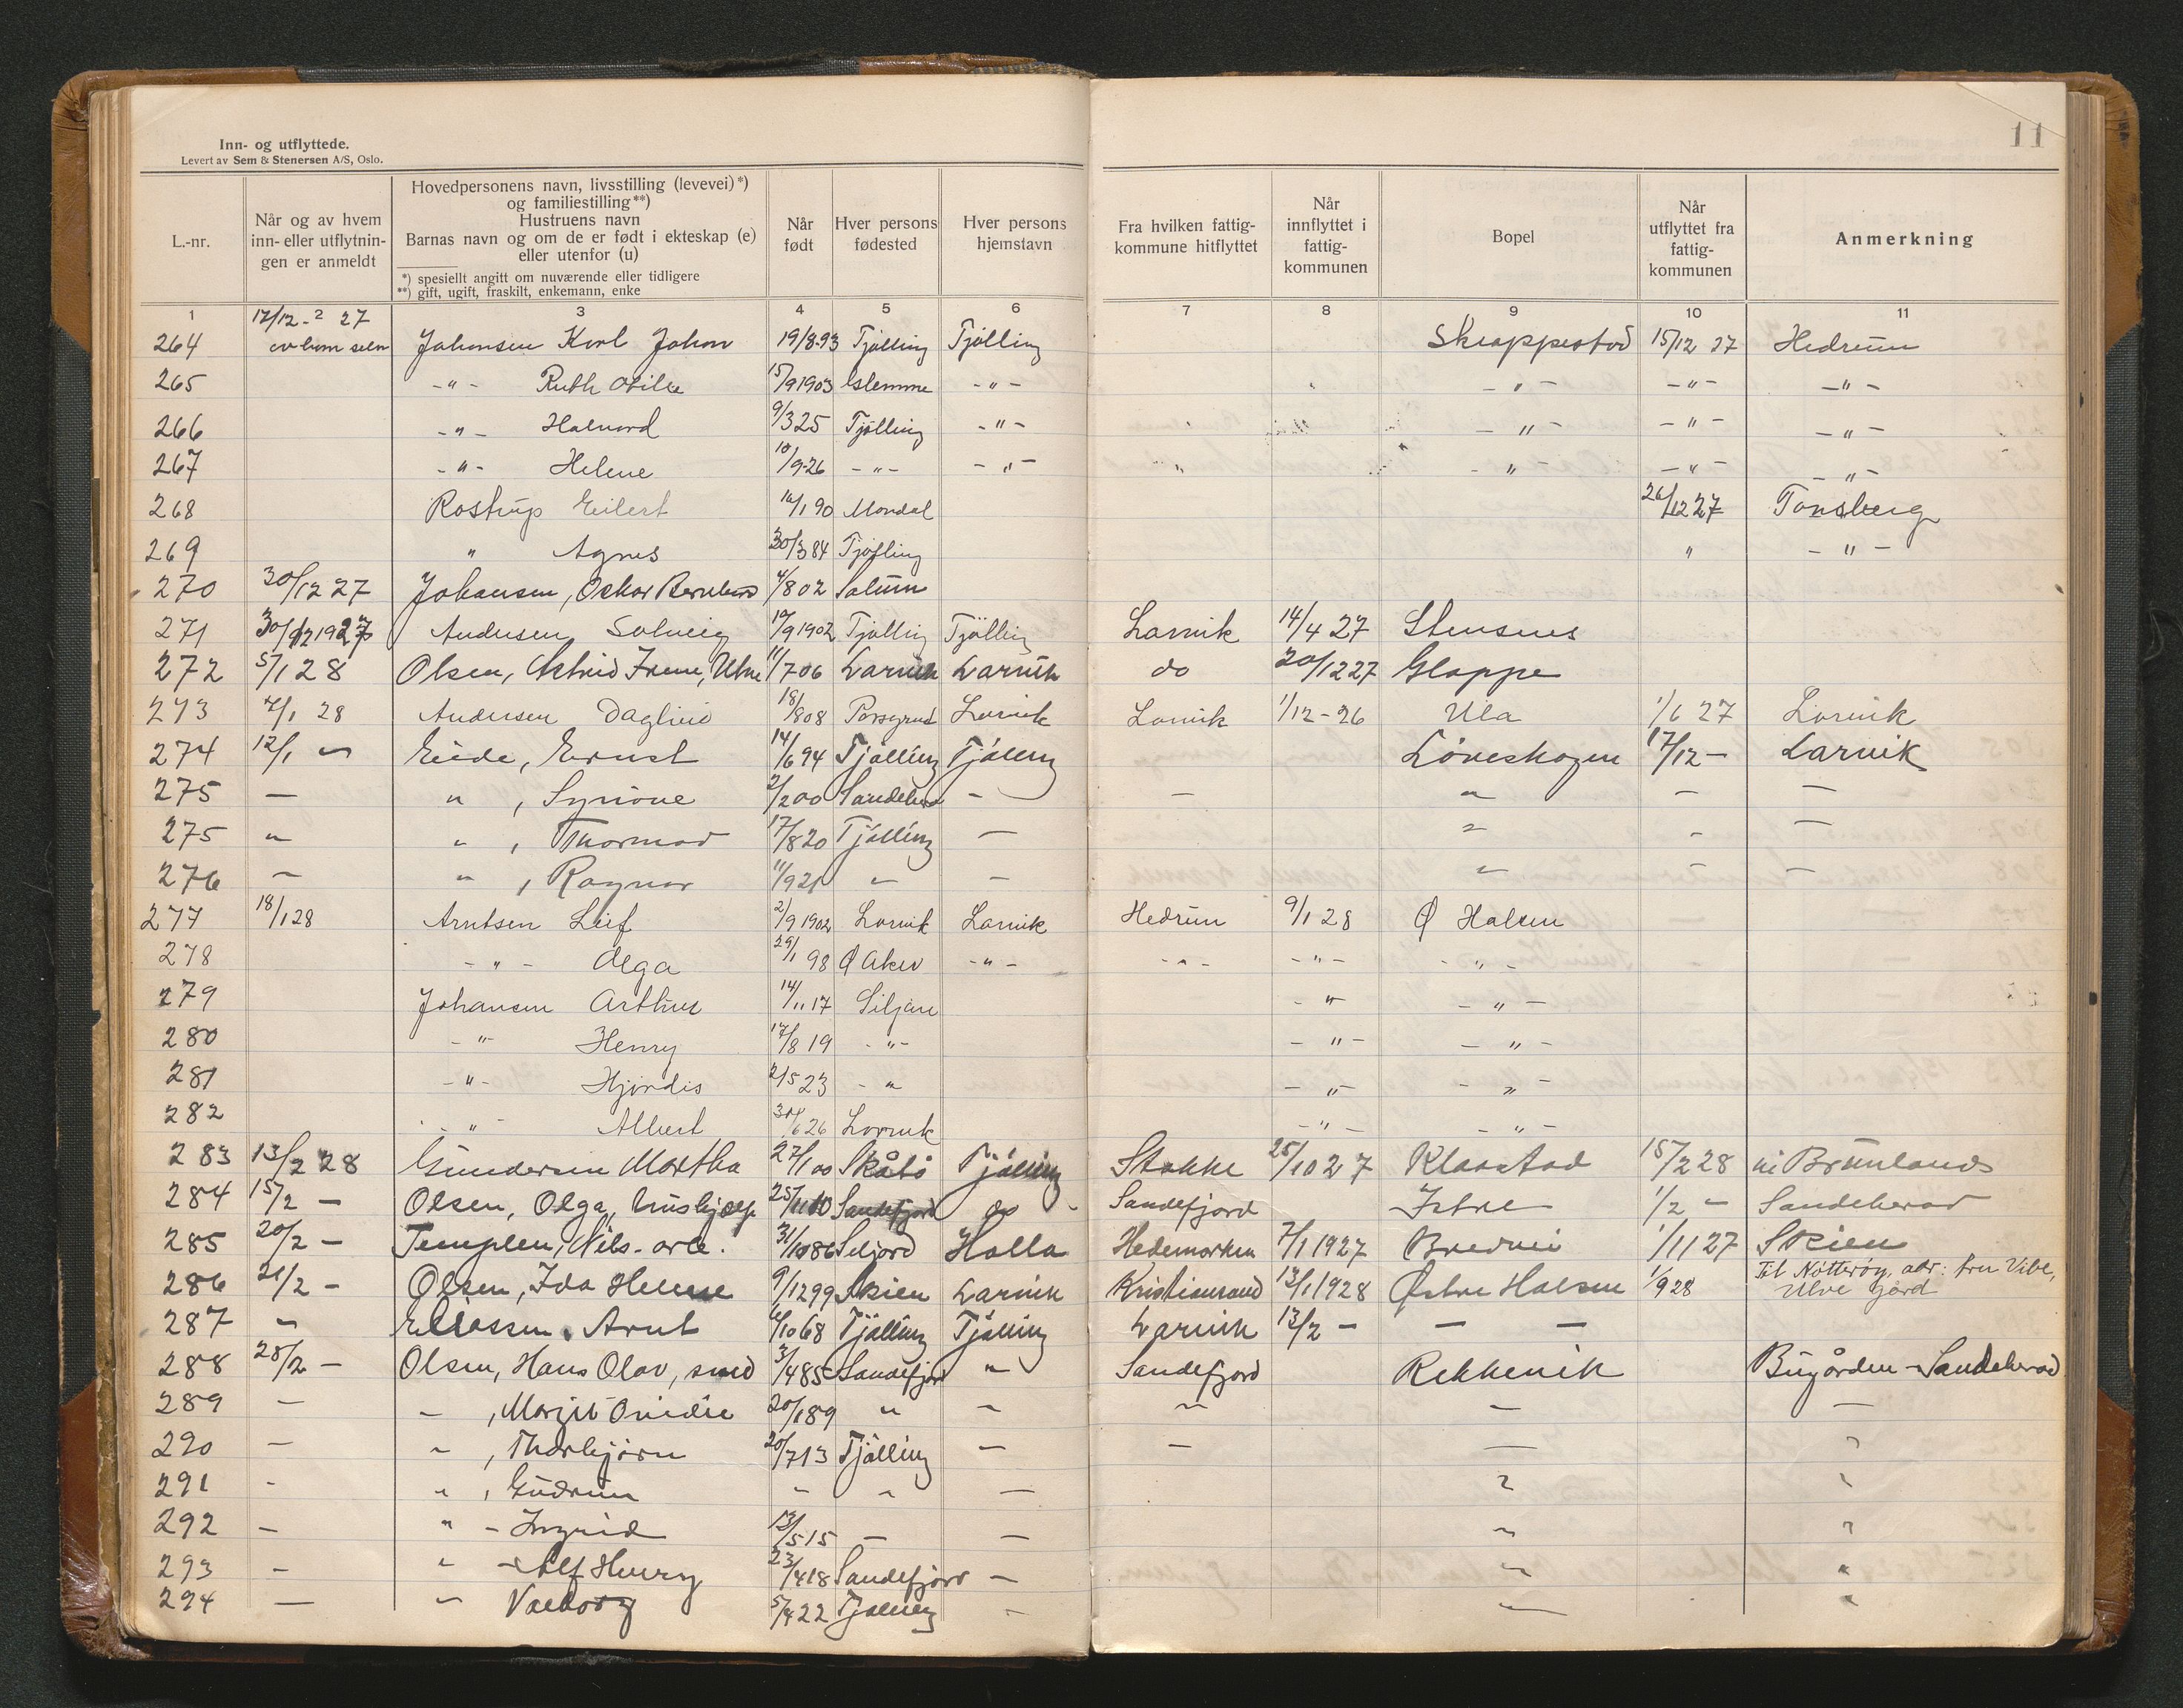 Inn- og utflyttede.
Levert av Sem & Stenersen A/S, Oslo.
11
L.-nr. Når og av hvem inn- eller utflytnin-gen er anmeldt Hovedpersonens navn, livsstilling (levevei)*) og familiestilling**) Hustruens navn Barnas navn og om de er født i ekteskap (e) eller utenfor (u) *) spesiellt angitt om nuværende eller tidligere **) gift, ugift, fraskilt, enkemann, enke Når født Hver persons fødested Hver persons hjemstavn Fra hvilken fattig-kommune hitflyttet Når innflyttet i fattig-kommunen Bopel Når utflyttet fra fattig-kommunen Anmerkning
1 2 3 4 5 6 7 8 9 10 11
17/12- 27
264 av ham selv Johansen Karl Johan 19/8-93 Tjølling Tjølling Skrappestad 15/12 27 Hedrum
265 -"- Ruth Otilie 15/9 1903 Glemme -"- -"- -"- -"-
266 -"- Halvard 9/3 25 Tjølling -"- -"- -"- -"-
267 -"- Helene 10/9-26 -"- -"- " -"- -"- -"-
268 Rostrup Eilert 14/1 90 Mandal 26/12 27 Tønsberg
269 " Agnes 30/3 84 Tjølling " -"-
270 30/12 27 Johansen, Oskar 4/8 02 Solum
271 30/12 1927 Andersen Solveig 19/9 1902 Tjølling Tjølling Larvik 14/4 27 Stensnes
272 5/1 28 Olsen, Astrid Irene, 11/7 06 Larvik Larvik do 20/12 27 Gloppe
273 7/1 28 Andersen Dagluv 18/8 08 Porsgrund Larvik Larvik 1/12-26 Ula 1/6 27 Larvik
274 12/1 " Eide, Ernst 14/6 94 Tjølling Tjølling Løveskogen 17/12- Larvik
275 - " , Synøve 2/2 00 Sandeherr - - " - -
275 " " , Thormod 17/8 20 Tjølling - " - -
276 - " , Ragnar 11/9 21 " - " - -
277 18/1 28 Arntsen Leif 2/9 1902 Larvik Larvik Hedrum 9/1 28 Ø Halsen
278 -"- Olga 29/1 98 Ø Aker -"- -"- -"- -"-
279 Johansen Arthur 14/11 17 Siljan -" -"-
280 -"- Henry 17/8 19 -"- -"- -"-
281 -"- Hjørdis 2/5 23 -" -"- -"-
282 -"- Albert 30/6 26 Larvik -"- -"-
283 13/2 28 Gundersen Martha 27/1 00 Skåtø Tjølling Stokke 25/10 27 Klaastad 15/2 28 Brunlanes
284 15/2 - Olsen, Olga, hushjelp 25/11 10 Sandefjord do Sandefjord Istre 1/2 - Sandeherad
285 20/2 - Templen, Nils - arb. 31/10 86 Seljord Holla Hedemarken 7/1 1927 Bredvei 1/11 27 Skien
286 21/2 - Olsen, Ida Helene 9/12 99 Skien Larvik Kristiansand 13/1 1928 Østre Halsen 1/9 28 Til Nøtterøy, adr: fru Vibe,
Ulve Gård
287 " Eliassen, Arnt 6/10 68 Tjølling Tjølling Larvik 13/2 - - -
288 28/2 - Olsen, Hans Olav, smed 3/4 85 Sandefjord " Sandefjord Rekkevik Bugården - Sandeherad
289 - - , Margit Ovidie 20/1 89 " - " - -
290 - " , Thorbjørn 20/7 13 Tjølling - - - "
291 - " , Gudrun - " - " "
292 - " - Ingrid 13/5 15 - - " "
293 - " - Alf Henry 23/4 18 Sandefjord - " "
294 - " Valborg 5/4 22 Tjølling - - "